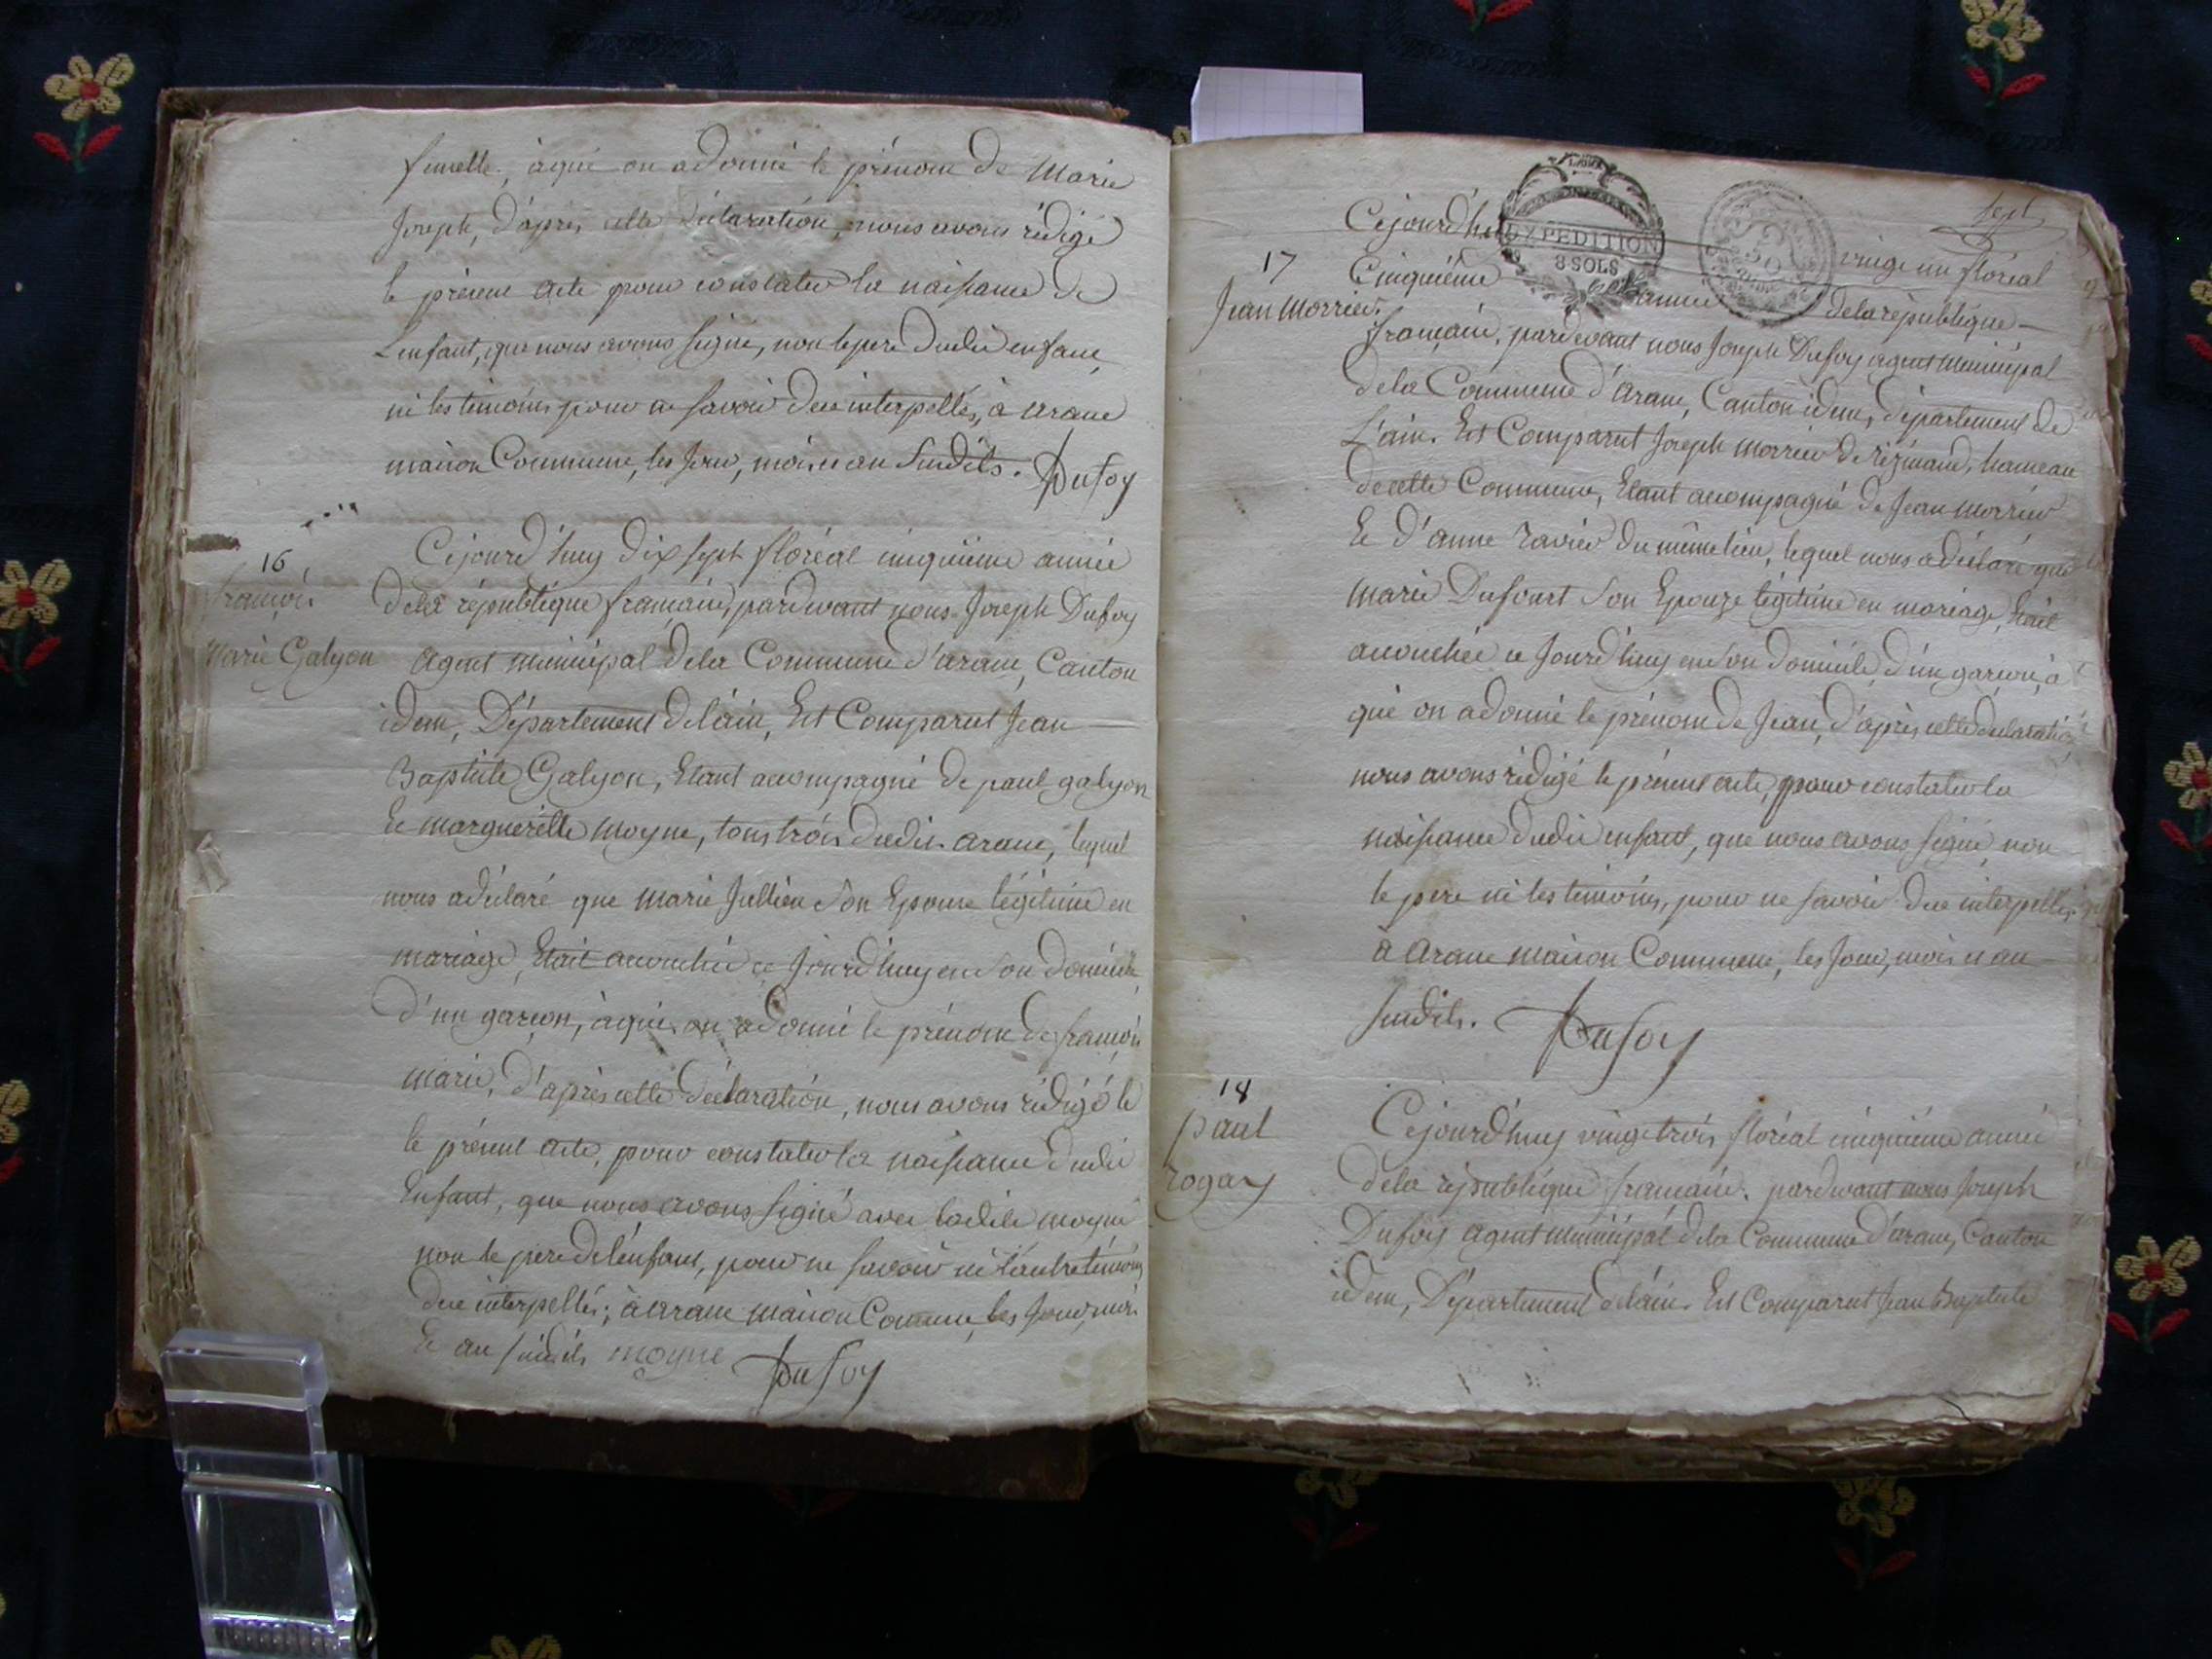 femelle, àqui on adonné le prénom de Marie
Joseph, D'après cette Déclaration, nous avons rédigé
le présent acte pour constater la naissance de
L'enfant, que nous avons signé, non lepere dudit enfant,
ni les témoins pour ne savoir de ce interpellés, à arane
maison Commune, les Jour, mois et an Susdits. Dufoy
16
françois
Marie Galyon
Cejourd'huy Dix sept floréal cinquième année
dela république française, pardevant nous Joseph Dufoy
agent municipal dela Commune d'arane, Canton
idem, Département delain, Est Comparut Jean
Baptiste Galyon, Etant accompagné de paul galyon
Et margueritte moyne, tous trois dudit arane, lequel
nous adéclaré que marie Jullien son Epouse légitime en
mariage, Etait accouchée ce Jourd'huy en son domicile
d'un garçon, àqui on adonné le prénom de françois
marie, D'après cette Déclaration, nous avons rédigé le
le présent acte, pour constater la naissance dudit
Enfant, que nous avons signé avec ladite moyne
non le pere del'enfant, pour ne savoir ni l'autre témoin
de ce interpellés; à arane maison Commune, les Jour, mois
Et an susdits moyne Dufoy
sept
EXPEDITION
8 SOLS
17
Jean Morrier.
Cejourd'hui vingt un floréal
Cinquième année dela république
française, pardevant nous Joseph Dufoy agent municipal
dela Commune d'arane, Canton idem, département de
L'ain. Est Comparut Joseph morrier de rézinand, hameau
de cette Commune, Etant accompagné de Jean morrier
Et d'anne ravier du même lieu, lequel nous adéclaré que
marie Dufourt son Epouze légitime en mariage, Etait
accouchée ce Jourd'huy en son domicile, d'un garçon, à
qui on adonné le prénom de Jean, d'après cette déclaration
nous avons rédigé le présent acte, pour constater la
naissance dudit enfant, que nous avons signé, non
le pere ni les témoins, pour ne savoir de ce interpellés,
à arane maison Commune, les Jour, mois et an
susdits. Dufoy
18
paul
rogay
Cejourd'huy vingt trois floréal cinquième année
dela république française. pardevant nous Joseph
Dufoy agent municipal dela Commune d'arane, Canton
idem, Département delain. Est Comparut Jean Baptiste